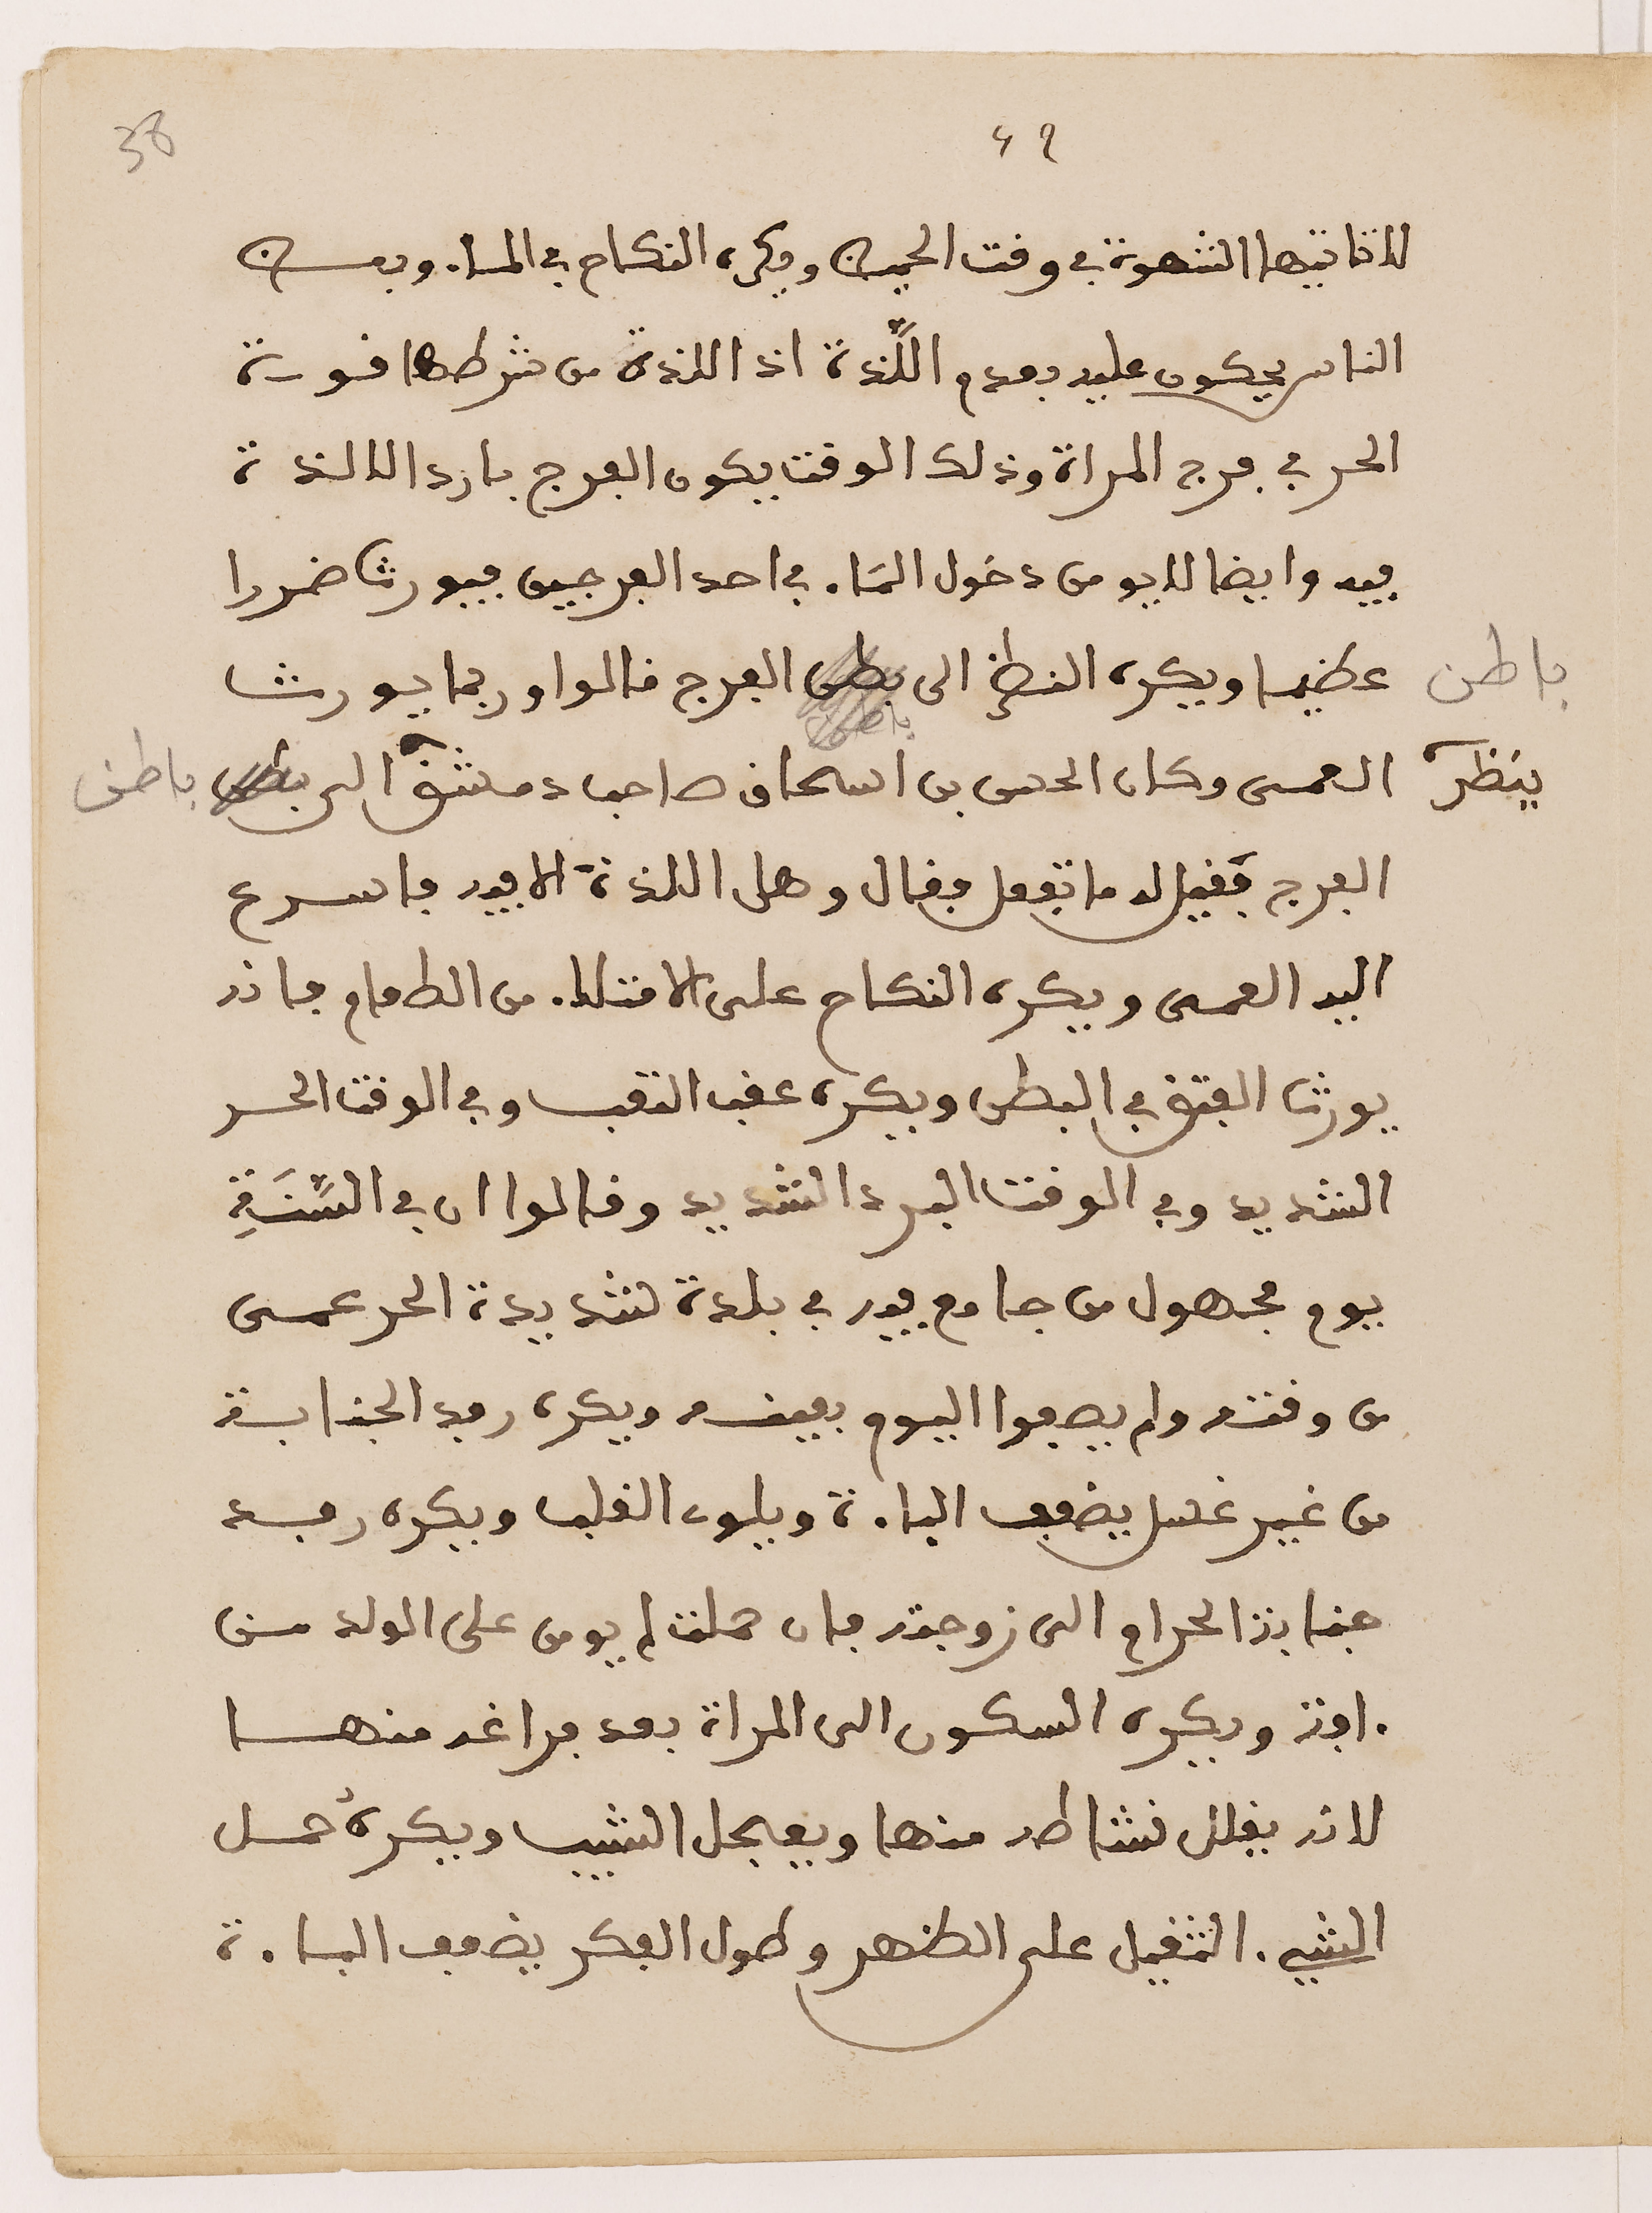 38
49
لا تاتيها الشهوة في وقت الحيض ويكره النكاح في الماء وبعض
الناس يحكون عليه بعدم اللَّذة اذ اللذة من شرطها قوة
الحر في فرج المراة وذلك الوقت يكون الفرج باردا لا لذة
فيه وايضا لا يومن دخول الماء في احد الفرجين فيورث ضررا
باطن عظيما ويكره النظر الى بطن الفرج قالوا وربما يورث
باطن
ينظر العمى وكان الحسن بن اسحاق صاحب دمشق الى بطن باطن
الفرج فقيل له ما تفعل فقال وهل اللذة الا فيه فاسرع
اليه العمى ويكره النكاح على الامتلاء من الطعام فانه
يورث الفتق في البطن ويكره عقب التعب وفي الوقت الحر
الشديد وفي الوقت البرد الشديد وقالوا ان في السَّنَةِ
يوم مجهول من جامع فيه في بلدة شديدة الحر عمى
من وقته ولم يصفوا اليوم بعينه ويكره بعد الجنابة
من غير غسل يضعف الباءة ويلوث القلب ويكره بعد
جنابة الحرام الى زوجته فان حملت لم يومن على الولد من
ءافة ويكره السكون الى المراة بعد فراغه منها
لانه يقلل نشاطه منها ويعجل الشيب ويكره حمل
الشيء الثقيل على الظهر وطول الفكر يضعف الباءة